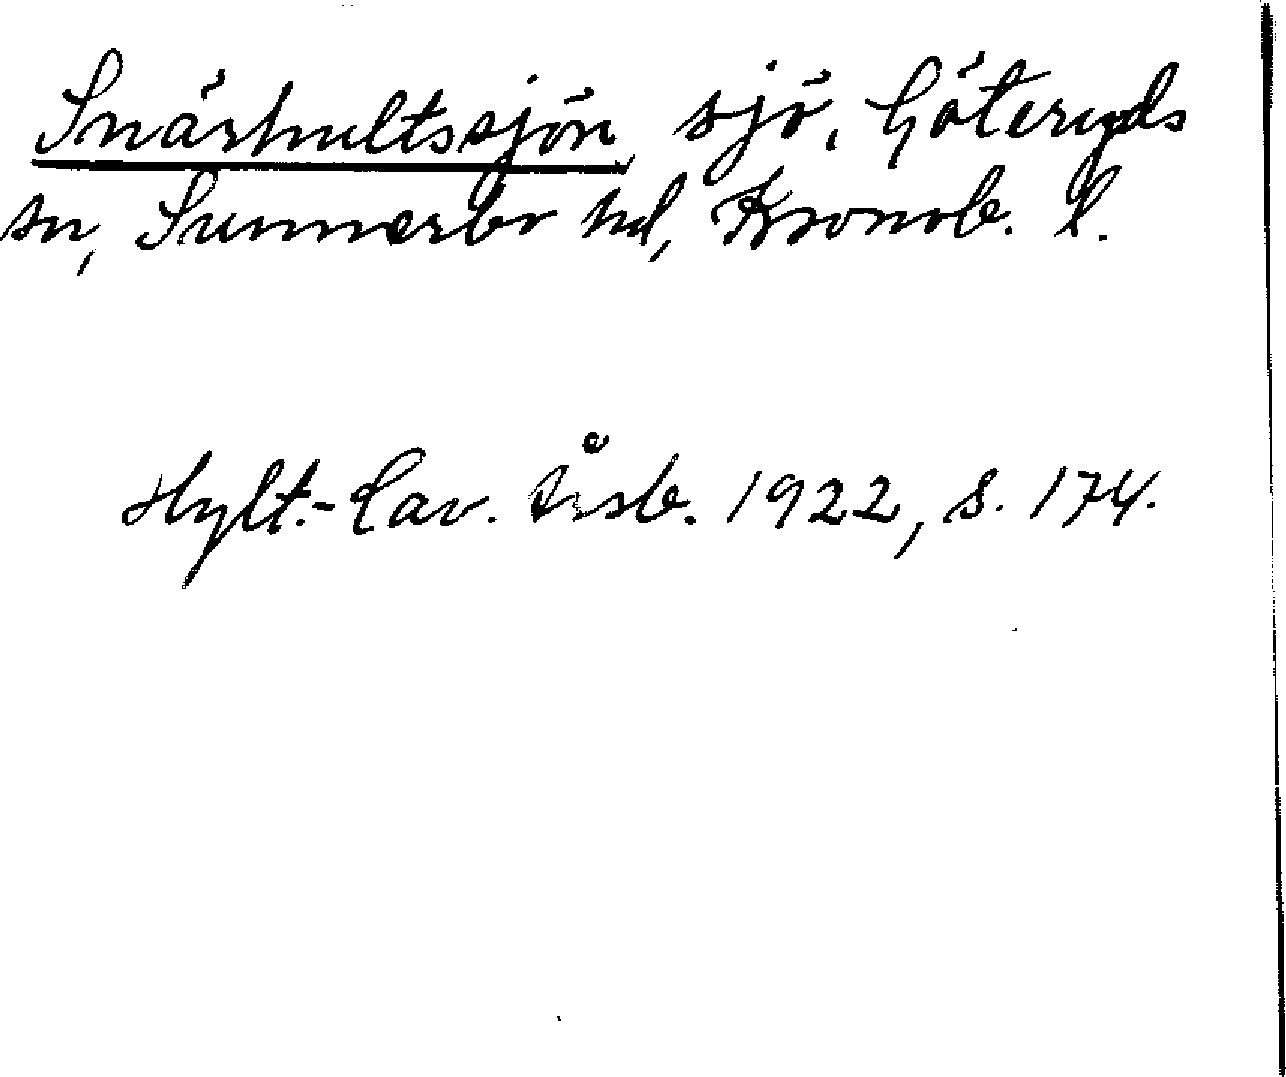 Snärhultssjön, sjö, Göteryds
sn, Sunnerbo hd, Kronob. l.
Hylt.-Cav. Årsb. 1922, s. 174.